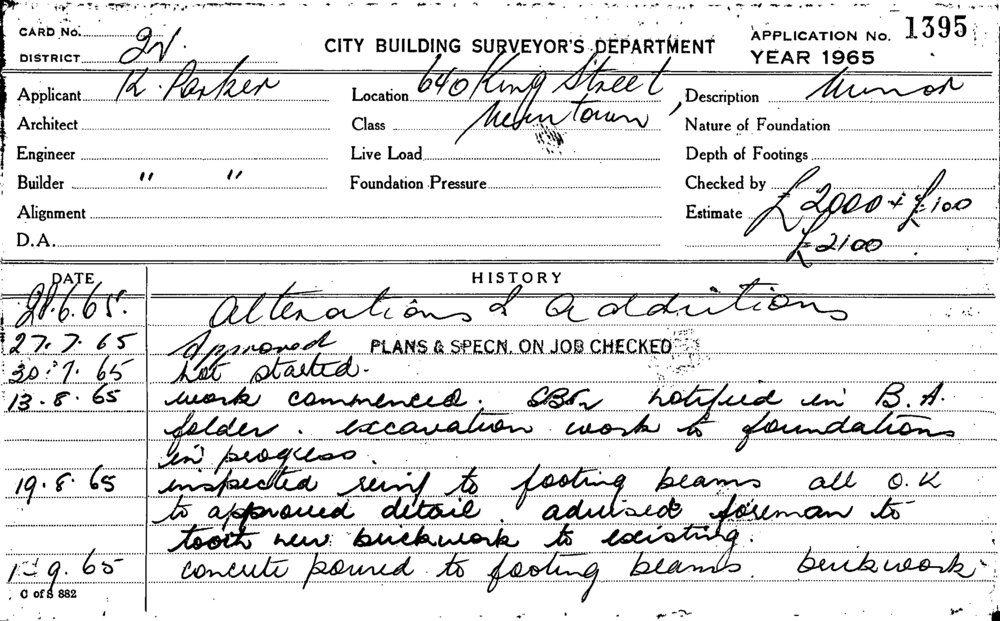 CARD No.
CITY BUILDING SURVEYOR'S DEPARTMENT
APPLICATION No. 1395
DISTRICT 2N.
YEAR 1965
Applicant K. Parker
Location 640 King Street,
Description Minor
Architect
Class Newtown
Nature of Foundation
Engineer
Live Load
Depth of Footings
Builder " "
Foundation Pressure
Checked by
Alignment
Estimate £2000 + £100
D.A.
£2100
DATE HISTORY
.6.65. Alterations & Addition
27.7.65 Approved PLANS & SPECN. ON JOB CHECKED
30.7.65 Not started.
13.8.65 work commenced. notified in B.A.
folder. excavation work to foundations
in progress.
19.8.65 inspected reinf to footing beams all O.K
to approved detail. advised foreman to
tooth new brickwork to existing.
9.65 concrete poured to footing beams. brickwork
C of S 882